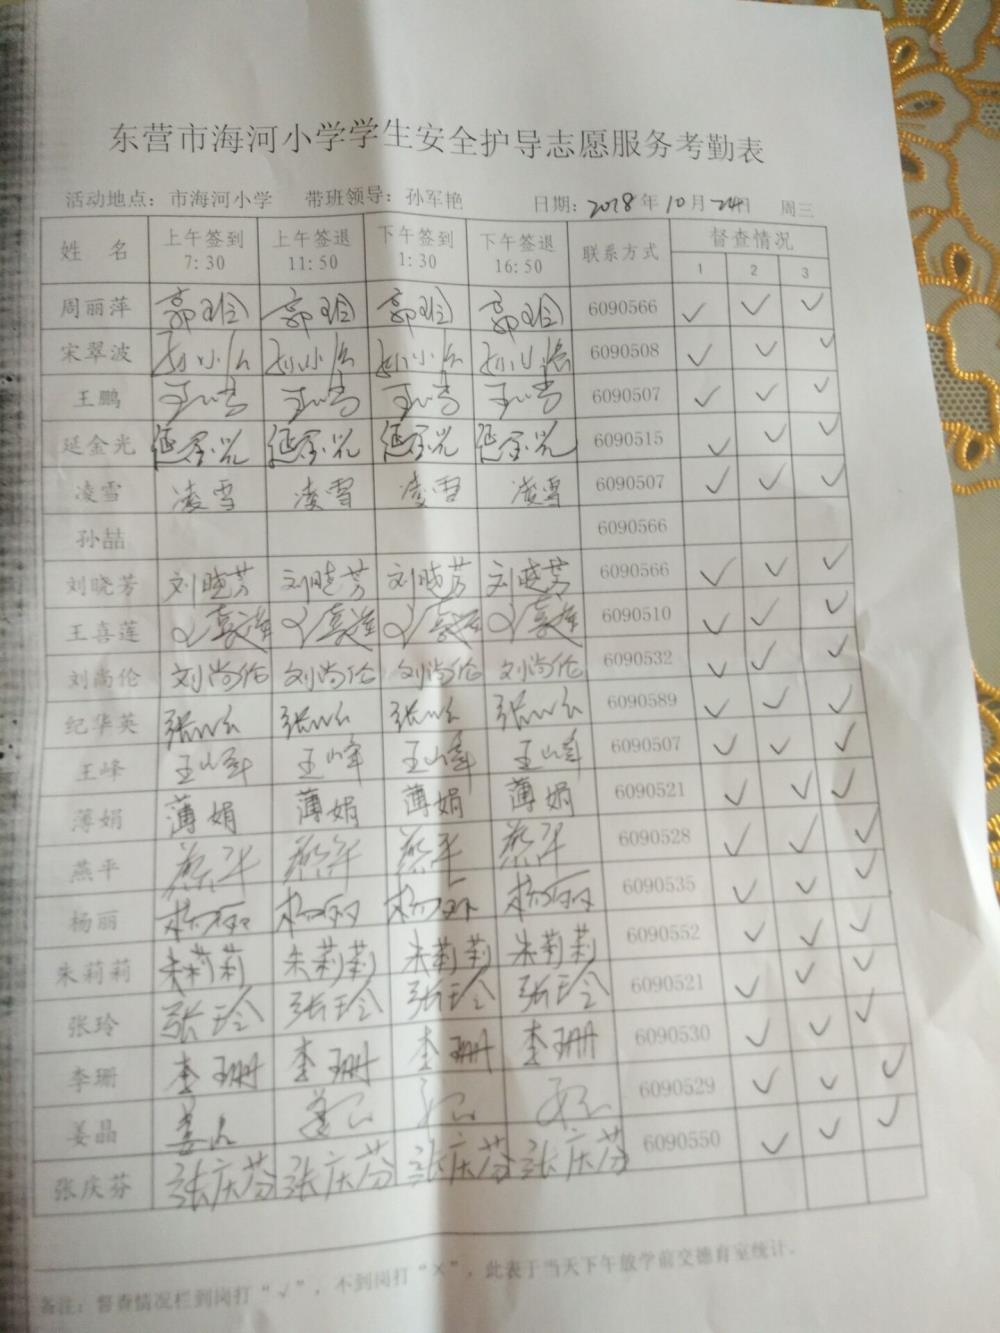 东营市海河小学学生安全护导志愿服务考勤表
活动地点：市海河小学 带班领导：孙军艳 日期：2018年10月24日 周三
姓 名 上午签到 7:30 上午签退 11:50 下午签到 1:30 下午签退 16:50 联系方式 督查情况 1 2 3
周丽萍 6090566 ✓ ✓ ✓
宋翠波 6090508 ✓ ✓ ✓
王鹏 6090507 ✓ ✓ ✓
延金光 延金光 延金光 延金光 延金光 6090515 ✓ ✓ ✓
凌雪 凌雪 凌雪 凌雪 凌雪 6090507 ✓ ✓ ✓
孙喆 6090566
刘晓芳 刘晓芳 刘晓芳 刘晓芳 刘晓芳 6090566 ✓ ✓ ✓
王喜莲 6090510 ✓ ✓ ✓
刘尚伦 刘尚伦 刘尚伦 刘尚伦 刘尚伦 6090532 ✓ ✓ ✓
纪华英 6090589 ✓ ✓ ✓
王峰 王峰 王峰 王峰 王峰 6090507 ✓ ✓ ✓
薄娟 薄娟 薄娟 薄娟 薄娟 6090521 ✓ ✓ ✓
燕平 燕平 燕平 燕平 燕平 6090528 ✓ ✓ ✓
杨丽 杨丽 杨丽 杨丽 杨丽 6090535 ✓ ✓ ✓
朱莉莉 朱莉莉 朱莉莉 朱莉莉 朱莉莉 6090552 ✓ ✓ ✓
张玲 张玲 张玲 张玲 张玲 6090521 ✓ ✓ ✓
李珊 李珊 李珊 李珊 李珊 6090530 ✓ ✓ ✓
姜晶 6090529 ✓ ✓ ✓
张庆芬 张庆芬 张庆芬 张庆芬 张庆芬 6090550 ✓ ✓ ✓
备注：督查情况栏到岗打“√”，不到岗打“×”，此表于当天下午放学前交德育室统计.